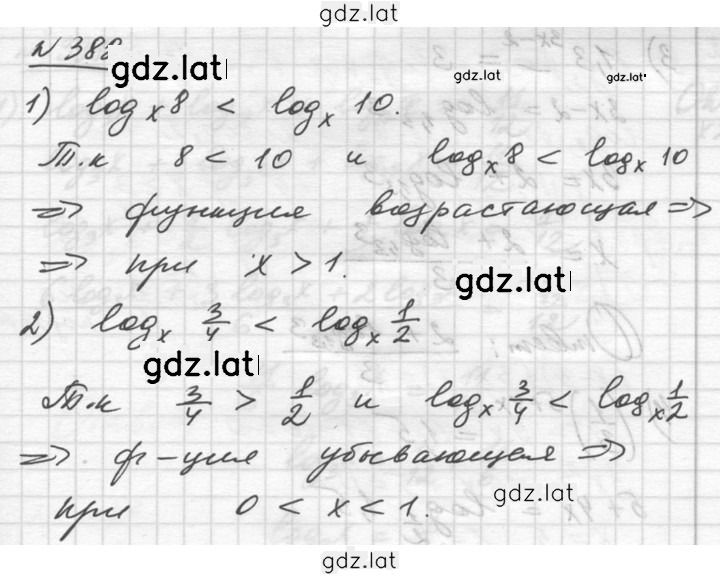 gdz.lat
№ 388
gdz.lat
gdz.lat
gdz.lat
1) log_x 8 < log_x 10.
Т.к 8 < 10 и log_x 8 < log_x 10
=> функция возрастающая =>
=> при x > 1.
gdz.lat
2) log_x 3/4 < log_x 1/2
gdz.lat
Т.к 3/4 > 1/2 и log_x 3/4 < log_x 1/2
=> ф-ция убывающая =>
gdz.lat
при 0 < x < 1.
gdz.lat